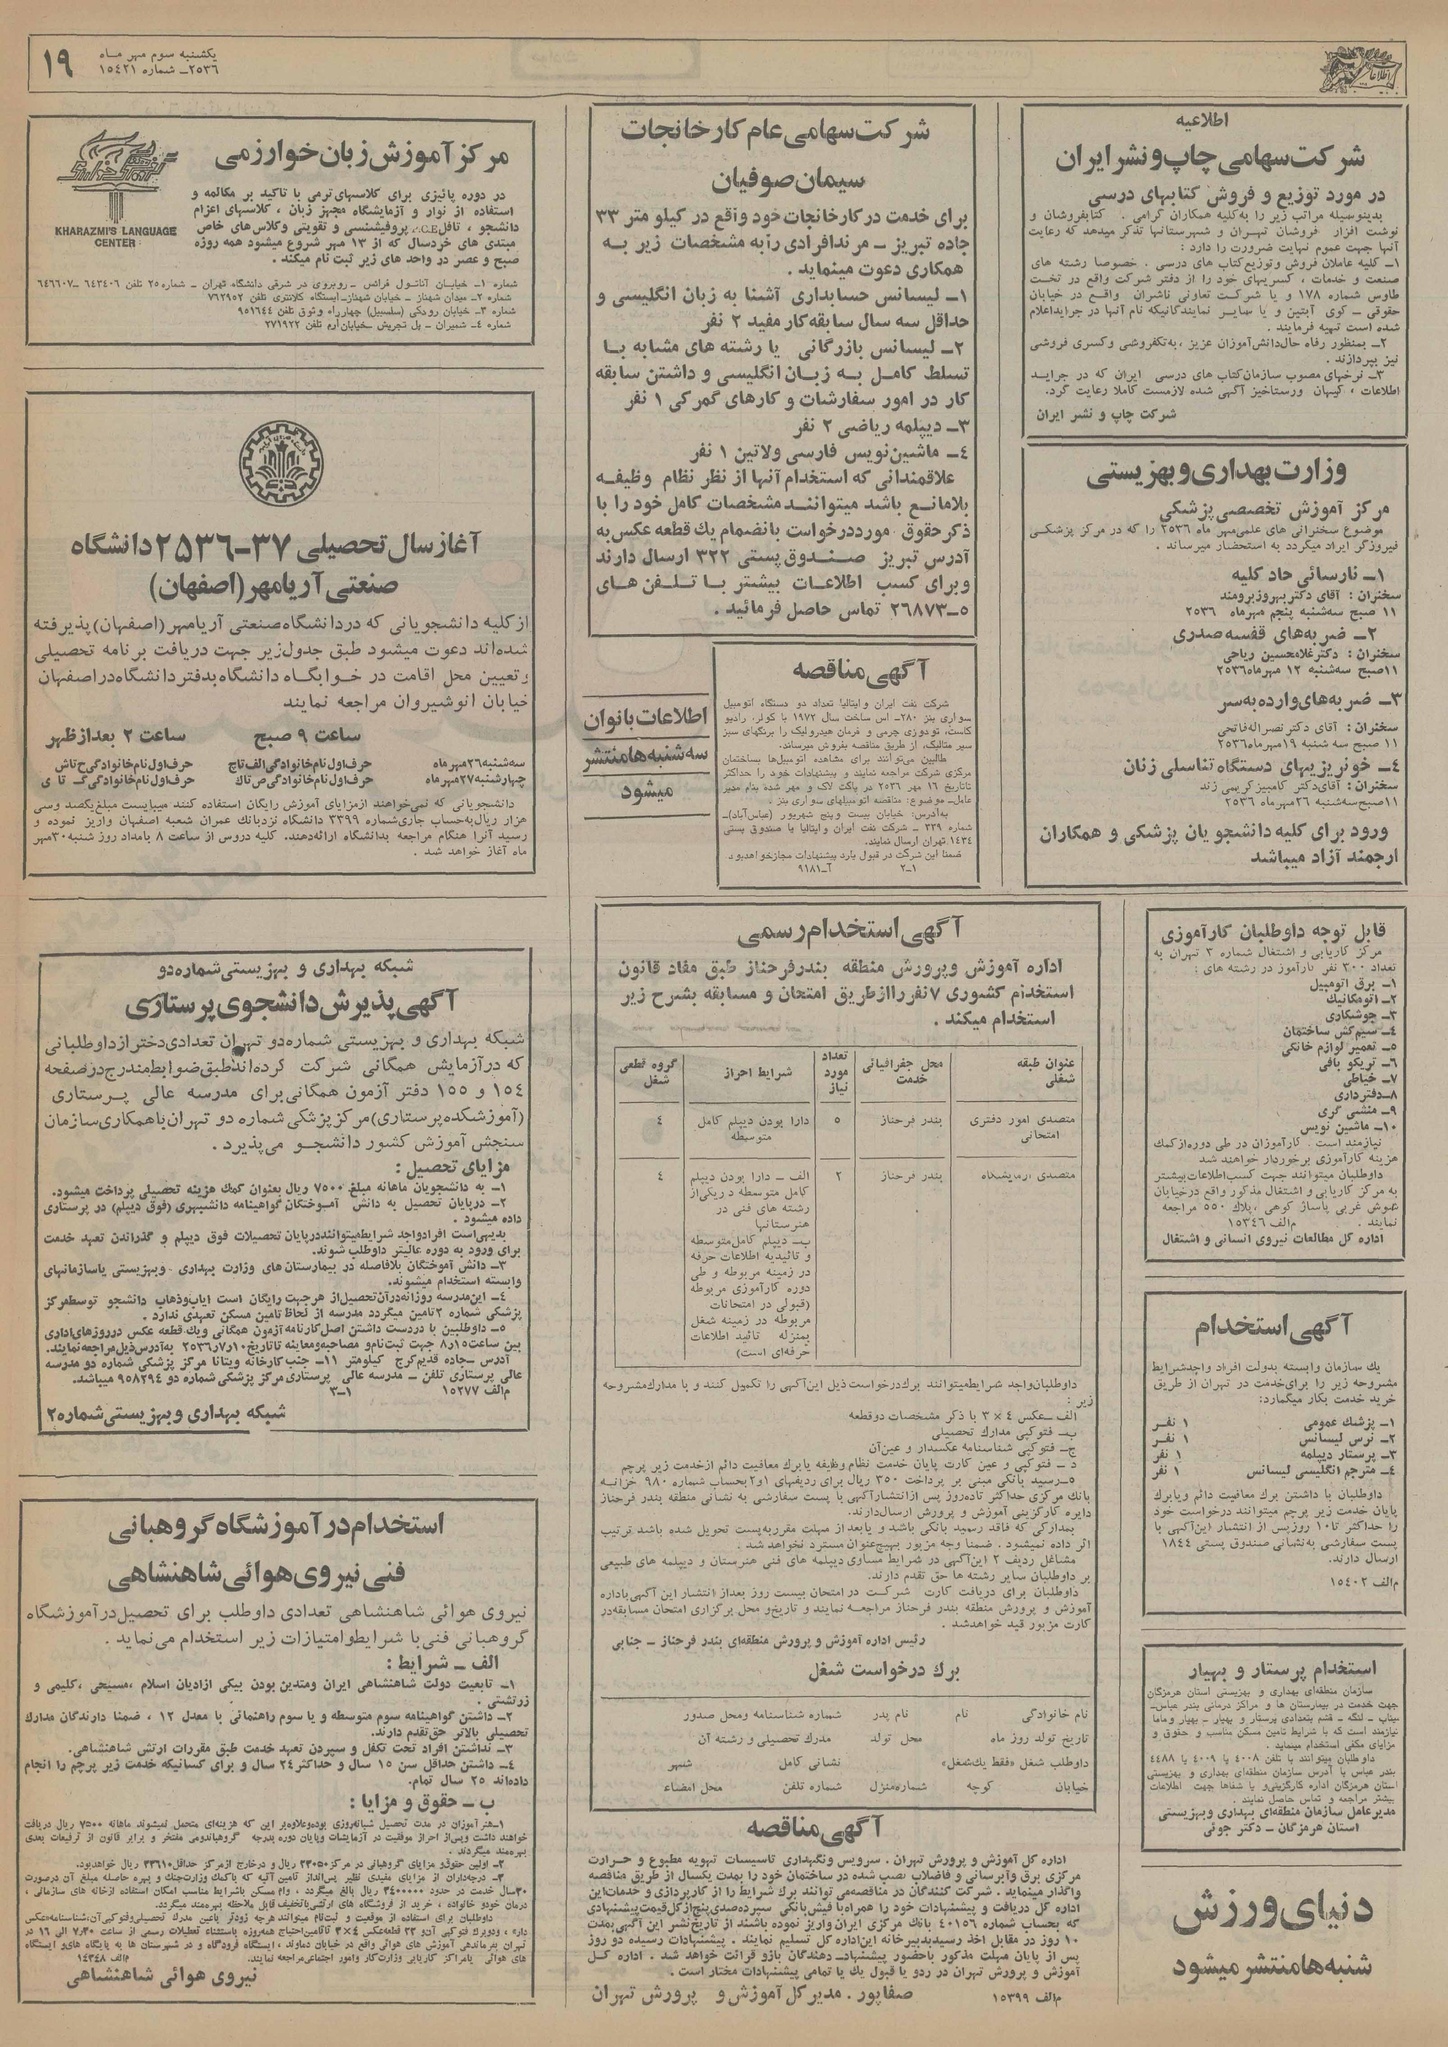 یکشنبه سوم مهر ماه
۲۵۳۶ـ شماره ۱۵۴۲۱
۱۹
اطلاعیه
شرکت سهامی چاپ و نشر ایران
در مورد توزیع و فروش کتابهای درسی
بدینوسیله مراتب زیر را به کلیه همکاران گرامی . کتابفروشان و
نوشت افزار فروشان تهران و شهرستانها تذکر میدهد که رعایت
آنها جهت عموم نهایت ضرورت را دارد :
۱ـ کلیه عاملان فروش و توزیع کتاب های درسی . خصوصا رشته های
صنعت و خدمات ، کسریهای خود را از دفتر شرکت واقع در تخت
طاوس شماره ۱۷۸ و یا شرکت تعاونی ناشران واقع در خیابان
حقوقی ـ کوی آبتین و یا سایر نمایندگانیکه نام آنها در جراید اعلام
شده است تهیه فرمایند .
۲ـ بمنظور رفاه حال دانش‌آموزان عزیز ، به تکفروشی و کسری فروشی
نیز بپردازند .
۳ـ نرخهای مصوب سازمان کتاب های درسی ایران که در جراید
اطلاعات ، کیهان و رستاخیز آگهی شده لازمست کاملا رعایت گردد.
شرکت چاپ و نشر ایران
وزارت بهداری و بهزیستی
مرکز آموزش تخصصی پزشکی
موضوع سخنرانی های علمی مهر ماه ۲۵۳۶ را که در مرکز پزشکی
فیروزگر ایراد میگردد به استحضار میرساند .
۱ـ نارسائی حاد کلیه
سخنران : آقای دکتر بهروز برومند
۱۱ صبح سه‌شنبه پنجم مهرماه ۲۵۳۶
۲ـ ضربه‌های قفسه صدری
سخنران : دکتر غلامحسین ریاحی
۱۱ صبح سه‌شنبه ۱۲ مهرماه ۲۵۳۶
۳ـ ضربه‌های وارده به سر
سخنران : آقای دکتر نصراله فاتحی
۱۱ صبح سه شنبه ۱۹ مهرماه ۲۵۳۶
۴ـ خونریزیهای دستگاه تناسلی زنان
سخنران : آقای دکتر کامبیز کریمی زند
۱۱ صبح سه‌شنبه ۲۶ مهرماه ۲۵۳۶
ورود برای کلیه دانشجویان پزشکی و همکاران
ارجمند آزاد میباشد
شرکت سهامی عام کارخانجات
سیمان صوفیان
برای خدمت در کارخانجات خود واقع در کیلو متر ۳۳
جاده تبریز ـ مرند افرادی را به مشخصات زیر به
همکاری دعوت مینماید .
۱ـ لیسانس حسابداری آشنا به زبان انگلیسی و
حداقل سه سال سابقه کار مفید ۲ نفر
۲ـ لیسانس بازرگانی یا رشته های مشابه با
تسلط کامل به زبان انگلیسی و داشتن سابقه
کار در امور سفارشات و کارهای گمرکی ۱ نفر
۳ـ دیپلمه ریاضی ۲ نفر
۴ـ ماشین‌نویس فارسی ولاتین ۱ نفر
علاقمندانی که استخدام آنها از نظر نظام وظیفه
بلامانع باشد میتوانند مشخصات کامل خود را با
ذکر حقوق مورد درخواست بانضمام یك قطعه عکس به
آدرس تبریز صندوق پستی ۳۲۲ ارسال دارند
و برای کسب اطلاعات بیشتر با تلفن های
۵ـ۲۶۸۷۳ تماس حاصل فرمائید .
آگهی مناقصه
شرکت نفت ایران و ایتالیا تعداد دو دستگاه اتومبیل
سواری بنز ۲۸۰ـ اس ساخت سال ۱۹۷۲ با کولر، رادیو
کاست، تودوزی چرمی و فرمان هیدرولیک را برنگهای سبز
سیر متالیک، از طریق مناقصه بفروش میرساند.
طالبین می‌توانند برای مشاهده اتومبیل‌ها بساختمان
مرکزی شرکت مراجعه نمایند و پیشنهادات خود را حداکثر
تا تاریخ ۱۶ مهر ۲۵۳۶ در پاکت لاک و مهر شده بنام مدیر
عامل ـ موضوع: مناقصه اتومبیلهای سواری بنز .
به آدرس: خیابان بیست و پنج شهریور (عباس‌آباد)ـ
شماره ۳۳۹ ـ شرکت نفت ایران و ایتالیا یا صندوق پستی
۱۴۳۴ تهران ارسال نمایند.
ضمنا این شرکت در قبول یا رد پیشنهادات مجاز خواهد بود
۲ـ۱
آـ۹۱۸۱
اطلاعات بانوان
سه شنبه‌ها منتشر
میشود
مرکز آموزش زبان خوارزمی
KHARAZMI'S LANGUAGE
CENTER
در دوره پائیزی برای کلاسهای ترمی با تاکید بر مکالمه و
استفاده از نوار و آزمایشگاه مجهز زبان ، کلاسهای اعزام
دانشجو ، تافل G.C.E. پروفیشنسی و تقویتی و کلاس های خاص
مبتدی های خردسال که از ۱۳ مهر شروع میشود همه روزه
صبح و عصر در واحد های زیر ثبت نام میکند .
شماره ۱ـ خیابان آناتول فرانس ـ روبروی در شرقی دانشگاه تهران ـ شماره ۲۵ تلفن ۶۴۳۴۰۶ ـ ۶۴۶۶۰۷
شماره ۲ـ میدان شهناز ـ خیابان شهناز ـ ایستگاه کلانتری تلفن ۷۶۲۹۵۲
شماره ۳ـ خیابان رودکی (سلسبیل) چهارراه وثوق تلفن ۹۵۱۶۴۴
شماره ۴ـ شمیران ـ پل تجریش ـ خیابان ارم تلفن ۲۷۱۹۲۲
آغاز سال تحصیلی ۳۷ـ۲۵۳۶ دانشگاه
صنعتی آریامهر (اصفهان)
از کلیه دانشجویانی که در دانشگاه صنعتی آریامهر (اصفهان) پذیرفته
شده‌اند دعوت میشود طبق جدول زیر جهت دریافت برنامه تحصیلی
و تعیین محل اقامت در خوابگاه دانشگاه بدفتر دانشگاه در اصفهان
خیابان انوشیروان مراجعه نمایند
ساعت ۹ صبح
ساعت ۲ بعد از ظهر
سه‌شنبه ۲۶ مهر ماه حرف اول نام خانوادگی الف تا چ حرف اول نام خانوادگی ح تا ش
چهارشنبه ۲۷ مهر ماه حرف اول نام خانوادگی ص تا ك حرف اول نام خانوادگی گ تا ی
دانشجویانی که نمی‌خواهند از مزایای آموزش رایگان استفاده کنند میبایست مبلغ یکصد و سی
هزار ریال به حساب جاری شماره ۳۳۹۹ دانشگاه نزد بانك عمران شعبه اصفهان واریز نموده و
رسید آنرا هنگام مراجعه بدانشگاه ارائه دهند. کلیه دروس از ساعت ۸ بامداد روز شنبه ۳۰ مهر
ماه آغاز خواهد شد .
شبکه بهداری و بهزیستی شماره دو
آگهی پذیرش دانشجوی پرستاری
شبکه بهداری و بهزیستی شماره دو تهران تعدادی دختر از داوطلبانی
که در آزمایش همگانی شرکت کرده‌اند طبق ضوابط مندرج در صفحه
۱۵۴ و ۱۵۵ دفتر آزمون همگانی برای مدرسه عالی پرستاری
(آموزشکده پرستاری) مرکز پزشکی شماره دو تهران با همکاری سازمان
سنجش آموزش کشور دانشجو می‌پذیرد .
مزایای تحصیل :
۱ـ به دانشجویان ماهانه مبلغ ۷۵۰۰ ریال بعنوان کمك هزینه تحصیلی پرداخت میشود.
۲ـ در پایان تحصیل به دانش آموختگان گواهینامه دانشبهری (فوق دیپلم) در پرستاری
داده میشود .
بدیهی است افراد واجد شرایط میتوانند در پایان تحصیلات فوق دیپلم و گذراندن تعهد خدمت
برای ورود به دوره عالیتر داوطلب شوند.
۳ـ دانش آموختگان بلافاصله در بیمارستان های وزارت بهداری ـ و بهزیستی یا سازمانهای
وابسته استخدام میشوند.
۴ـ این مدرسه روزانه در آن تحصیل از هر جهت رایگان است ایاب و ذهاب دانشجو توسط مرکز
پزشکی شماره ۲ تامین میگردد مدرسه از لحاظ تامین مسکن تعهدی ندارد .
۵ـ داوطلبین با در دست داشتن اصل کارنامه آزمون همگانی و یك قطعه عکس در روزهای اداری
بین ساعت ۱۵ر۸ جهت ثبت نام و مصاحبه و معاینه تا تاریخ ۱۰ر۷ر۲۵۳۶ به آدرس ذیل مراجعه نمایند.
آدرس ـ جاده قدیم کرج کیلومتر ۱۱ـ جنب کارخانه ویتانا مرکز پزشکی شماره دو مدرسه
عالی پرستاری تلفن ـ مدرسه عالی پرستاری مرکز پزشکی شماره دو ۹۵۸۲۹۴ میباشد.
م الف ۱۵۲۷۷
۳ـ۱
شبکه بهداری و بهزیستی شماره ۲
استخدام در آموزشگاه گروهبانی
فنی نیروی هوائی شاهنشاهی
نیروی هوائی شاهنشاهی تعدادی داوطلب برای تحصیل در آموزشگاه
گروهبانی فنی با شرایط و امتیازات زیر استخدام می‌نماید .
الف ـ شرایط :
۱ـ تابعیت دولت شاهنشاهی ایران و متدین بودن بیکی از ادیان اسلام ، مسیحی ، کلیمی و
زرتشتی .
۲ـ داشتن گواهینامه سوم متوسطه و یا سوم راهنمائی با معدل ۱۲ ، ضمنا دارندگان مدارك
تحصیلی بالاتر حق تقدم دارند.
۳ـ نداشتن افراد تحت تکفل و سپردن تعهد خدمت طبق مقررات ارتش شاهنشاهی.
۴ـ داشتن حداقل سن ۱۵ سال و حداکثر ۲۴ سال و برای کسانیکه خدمت زیر پرچم را انجام
داده‌اند ۲۵ سال تمام.
ب ـ حقوق و مزایا :
۱ـ هنرآموزان در مدت تحصیل شبانه‌روزی بوده و علاوه بر این که هزینه‌ای متحمل نمیشوند ماهانه ۷۵۰۰ ریال دریافت
خواهند داشت و پس از احراز موفقیت در آزمایشات و پایان دوره بدرجه گروهباندومی مفتخر و برابر قانون از ترفیعات بعدی
بهره‌مند میگردند .
۲ـ اولین حقوق و مزایای گروهبانی در مرکز ۲۳۰۵۰ ریال و در خارج از مرکز حداقل ۳۳۶۱۰ ریال خواهد بود.
۳ـ درجه‌داران از مزایای مفیدی نظیر پس‌انداز تامین آتیه که با کمك وزارت جنگ و بهره حاصله مبلغ آن در صورت
۳۰ سال خدمت در حدود ۳۴۰۰۰۰۰ ریال بالغ میگردد ، وام مسکن با شرایط مناسب امکان استفاده از خانه های سازمانی ،
درمان خود و خانواده ، خرید از فروشگاه های ارتشی با تخفیف قابل ملاحظه بهره‌مند میگردد.
نیروی هوائی شاهنشاهی
م الف ۱۴۳۴۸
آگهی استخدام رسمی
اداره آموزش و پرورش منطقه بندر فرحناز طبق مفاد قانون
استخدام کشوری ۷ نفر را از طریق امتحان و مسابقه بشرح زیر
استخدام میکند .
عنوان طبقه شغلی
محل جغرافیائی خدمت
تعداد مورد نیاز
شرایط احراز
گروه قطعی شغل
متصدی امور دفتری امتحانی
بندر فرحناز
۵
دارا بودن دیپلم کامل متوسطه
۴
متصدی آزمایشگاه
بندر فرحناز
۲
الف ـ دارا بودن دیپلم
کامل متوسطه در یکی از
رشته های فنی در
هنرستانها
ب ـ دیپلم کامل متوسطه
و تائیدیه اطلاعات حرفه
در زمینه مربوطه و طی
دوره کارآموزی مربوطه
(قبولی در امتحانات
مربوطه در زمینه شغل
بمنزله تائید اطلاعات
حرفه‌ای است)
۴
داوطلبان واجد شرایط میتوانند برك درخواست ذیل این آگهی را تکمیل کنند و با مدارك مشروحه
زیر :
الف ـ عکس ۴ × ۳ با ذکر مشخصات دو قطعه
ب ـ فتوکپی مدارك تحصیلی
ج ـ فتوکپی شناسنامه عکسدار و عین آن
د ـ فتوکپی و عین کارت پایان خدمت نظام وظیفه یا برك معافیت دائم از خدمت زیر پرچم
۵ـ رسید بانکی مبنی بر پرداخت ۳۵۰ ریال برای ردیفهای ۱و۲ بحساب شماره ۹۸۰ خزانه
بانك مرکزی حداکثر تا ده روز پس از انتشار آگهی با پست سفارشی به نشانی منطقه بندر فرحناز
دایره کارگزینی آموزش و پرورش ارسال دارند.
بمدارکی که فاقد رسید بانکی باشد و یا بعد از مهلت مقرر به پست تحویل شده باشد ترتیب
اثر داده نمیشود . ضمنا وجه مزبور بهیچ عنوان مسترد نخواهد شد .
مشاغل ردیف ۲ این آگهی در شرایط مساوی دیپلمه های فنی هنرستان و دیپلمه های طبیعی
بر داوطلبان سایر رشته ها حق تقدم دارند.
داوطلبان برای دریافت کارت شرکت در امتحان بیست روز بعد از انتشار این آگهی باداره
آموزش و پرورش منطقه بندر فرحناز مراجعه نمایند و تاریخ و محل برگزاری امتحان مسابقه در
کارت مزبور قید خواهد شد .
رئیس اداره آموزش و پرورش منطقه‌ای بندر فرحناز ـ جنابی
برك درخواست شغل
نام خانوادگی نام نام پدر شماره شناسنامه و محل صدور
تاریخ تولد روز ماه محل تولد مدرك تحصیلی و رشته آن
داوطلب شغل «فقط یك شغل» نشانی کامل شهر
خیابان کوچه شماره منزل شماره تلفن محل امضاء
آگهی مناقصه
اداره کل آموزش و پرورش تهران . سرویس و نگهداری تاسیسات تهویه مطبوع و حرارت
مرکزی برق و آبرسانی و فاضلاب نصب شده در ساختمان خود را بمدت یکسال از طریق مناقصه
واگذار مینماید . شرکت کنندگان در مناقصه می توانند برك شرایط را از کارپردازی و خدمات این
اداره کل دریافت و پیشنهادات خود را همراه با فیش بانکی سپرده صدی پنج از کل قیمت پیشنهادی
که بحساب شماره ۴۰۱۵۶ بانك مرکزی ایران واریز نموده باشند از تاریخ نشر این آگهی بمدت
۱۰ روز در مقابل اخذ رسید بدبیرخانه این اداره کل تسلیم نمایند . پیشنهادات رسیده دو روز
پس از پایان مهلت مذکور با حضور پیشنهاد ـ دهندگان باز و قرائت خواهد شد . اداره کل
آموزش و پرورش تهران در رد و یا قبول یك یا تمامی پیشنهادات مختار است .
م الف ۱۵۳۹۹
صفاپور . مدیر کل آموزش و پرورش تهران
قابل توجه داوطلبان کارآموزی
مرکز کاریابی و اشتغال شماره ۳ تهران به
تعداد ۳۰۰ نفر کارآموز در رشته های :
۱ـ برق اتومبیل
۲ـ اتومکانیك
۳ـ جوشکاری
۴ـ سیم‌کش ساختمان
۵ـ تعمیر لوازم خانگی
۶ـ تریکو بافی
۷ـ خیاطی
۸ـ دفترداری
۹ـ منشی گری
۱۰ـ ماشین نویس
نیازمند است . کارآموزان در طی دوره از کمك
هزینه کارآموزی برخوردار خواهند شد
داوطلبان میتوانند جهت کسب اطلاعات بیشتر
به مرکز کاریابی و اشتغال مذکور واقع در خیابان
شوش غربی پاساژ کوهی ، پلاك ۵۵۰ مراجعه
نمایند . م الف ۱۵۳۴۶
اداره کل مطالعات نیروی انسانی و اشتغال
آگهی استخدام
یك سازمان وابسته بدولت افراد واجد شرایط
مشروحه زیر را برای خدمت در تهران از طریق
خرید خدمت بکار میگمارد:
۱ـ پزشك عمومی ۱ نفر
۲ـ نرس لیسانس ۱ نفر
۳ـ پرستار دیپلمه ۱ نفر
۴ـ مترجم انگلیسی لیسانس ۱ نفر
داوطلبان با داشتن برك معافیت دائم و یا برك
پایان خدمت زیر پرچم میتوانند درخواست خود
را حداکثر تا ۱۰ روز پس از انتشار این آگهی با
پست سفارشی به نشانی صندوق پستی ۱۸۴۴
ارسال دارند.
م الف ۱۵۴۰۲
استخدام پرستار و بهیار
سازمان منطقه‌ای بهداری و بهزیستی استان هرمزگان
جهت خدمت در بیمارستان ها و مراکز درمانی بندر عباس ـ
میناب ـ لنگه ـ قشم بتعدادی پرستار و بهیار ـ بهیار و ماما
نیازمند است که با شرایط تامین مسکن مناسب و حقوق و
مزایای مکفی استخدام مینماید .
داوطلبان میتوانند با تلفن ۴۰۰۸ یا ۴۰۰۹ یا ۴۴۸۸
بندر عباس یا آدرس سازمان منطقه‌ای بهداری و بهزیستی
استان هرمزگان اداره کارگزینی و یا شفاها جهت اطلاعات
بیشتر مراجعه و تماس حاصل نمایند .
مدیر عامل سازمان منطقه‌ای بهداری و بهزیستی
استان هرمزگان ـ دکتر جوئی
دنیای ورزش
شنبه‌ها منتشر میشود